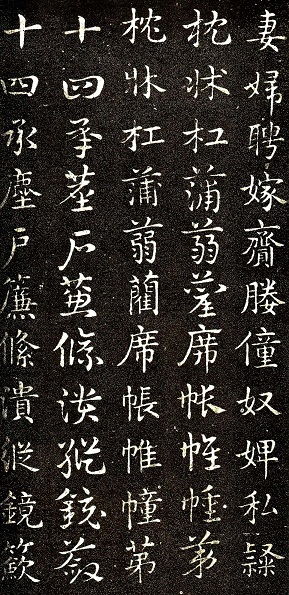 妻婦聘嫁齎媵僮奴婢私隸
枕牀杠蒲蒻藺席帳帷幢苐
枕牀杠蒲蒻藺席帳帷幢苐
十四承塵戶簾條潰縱鏡籢
十四承塵戶簾條潰縱鏡籢